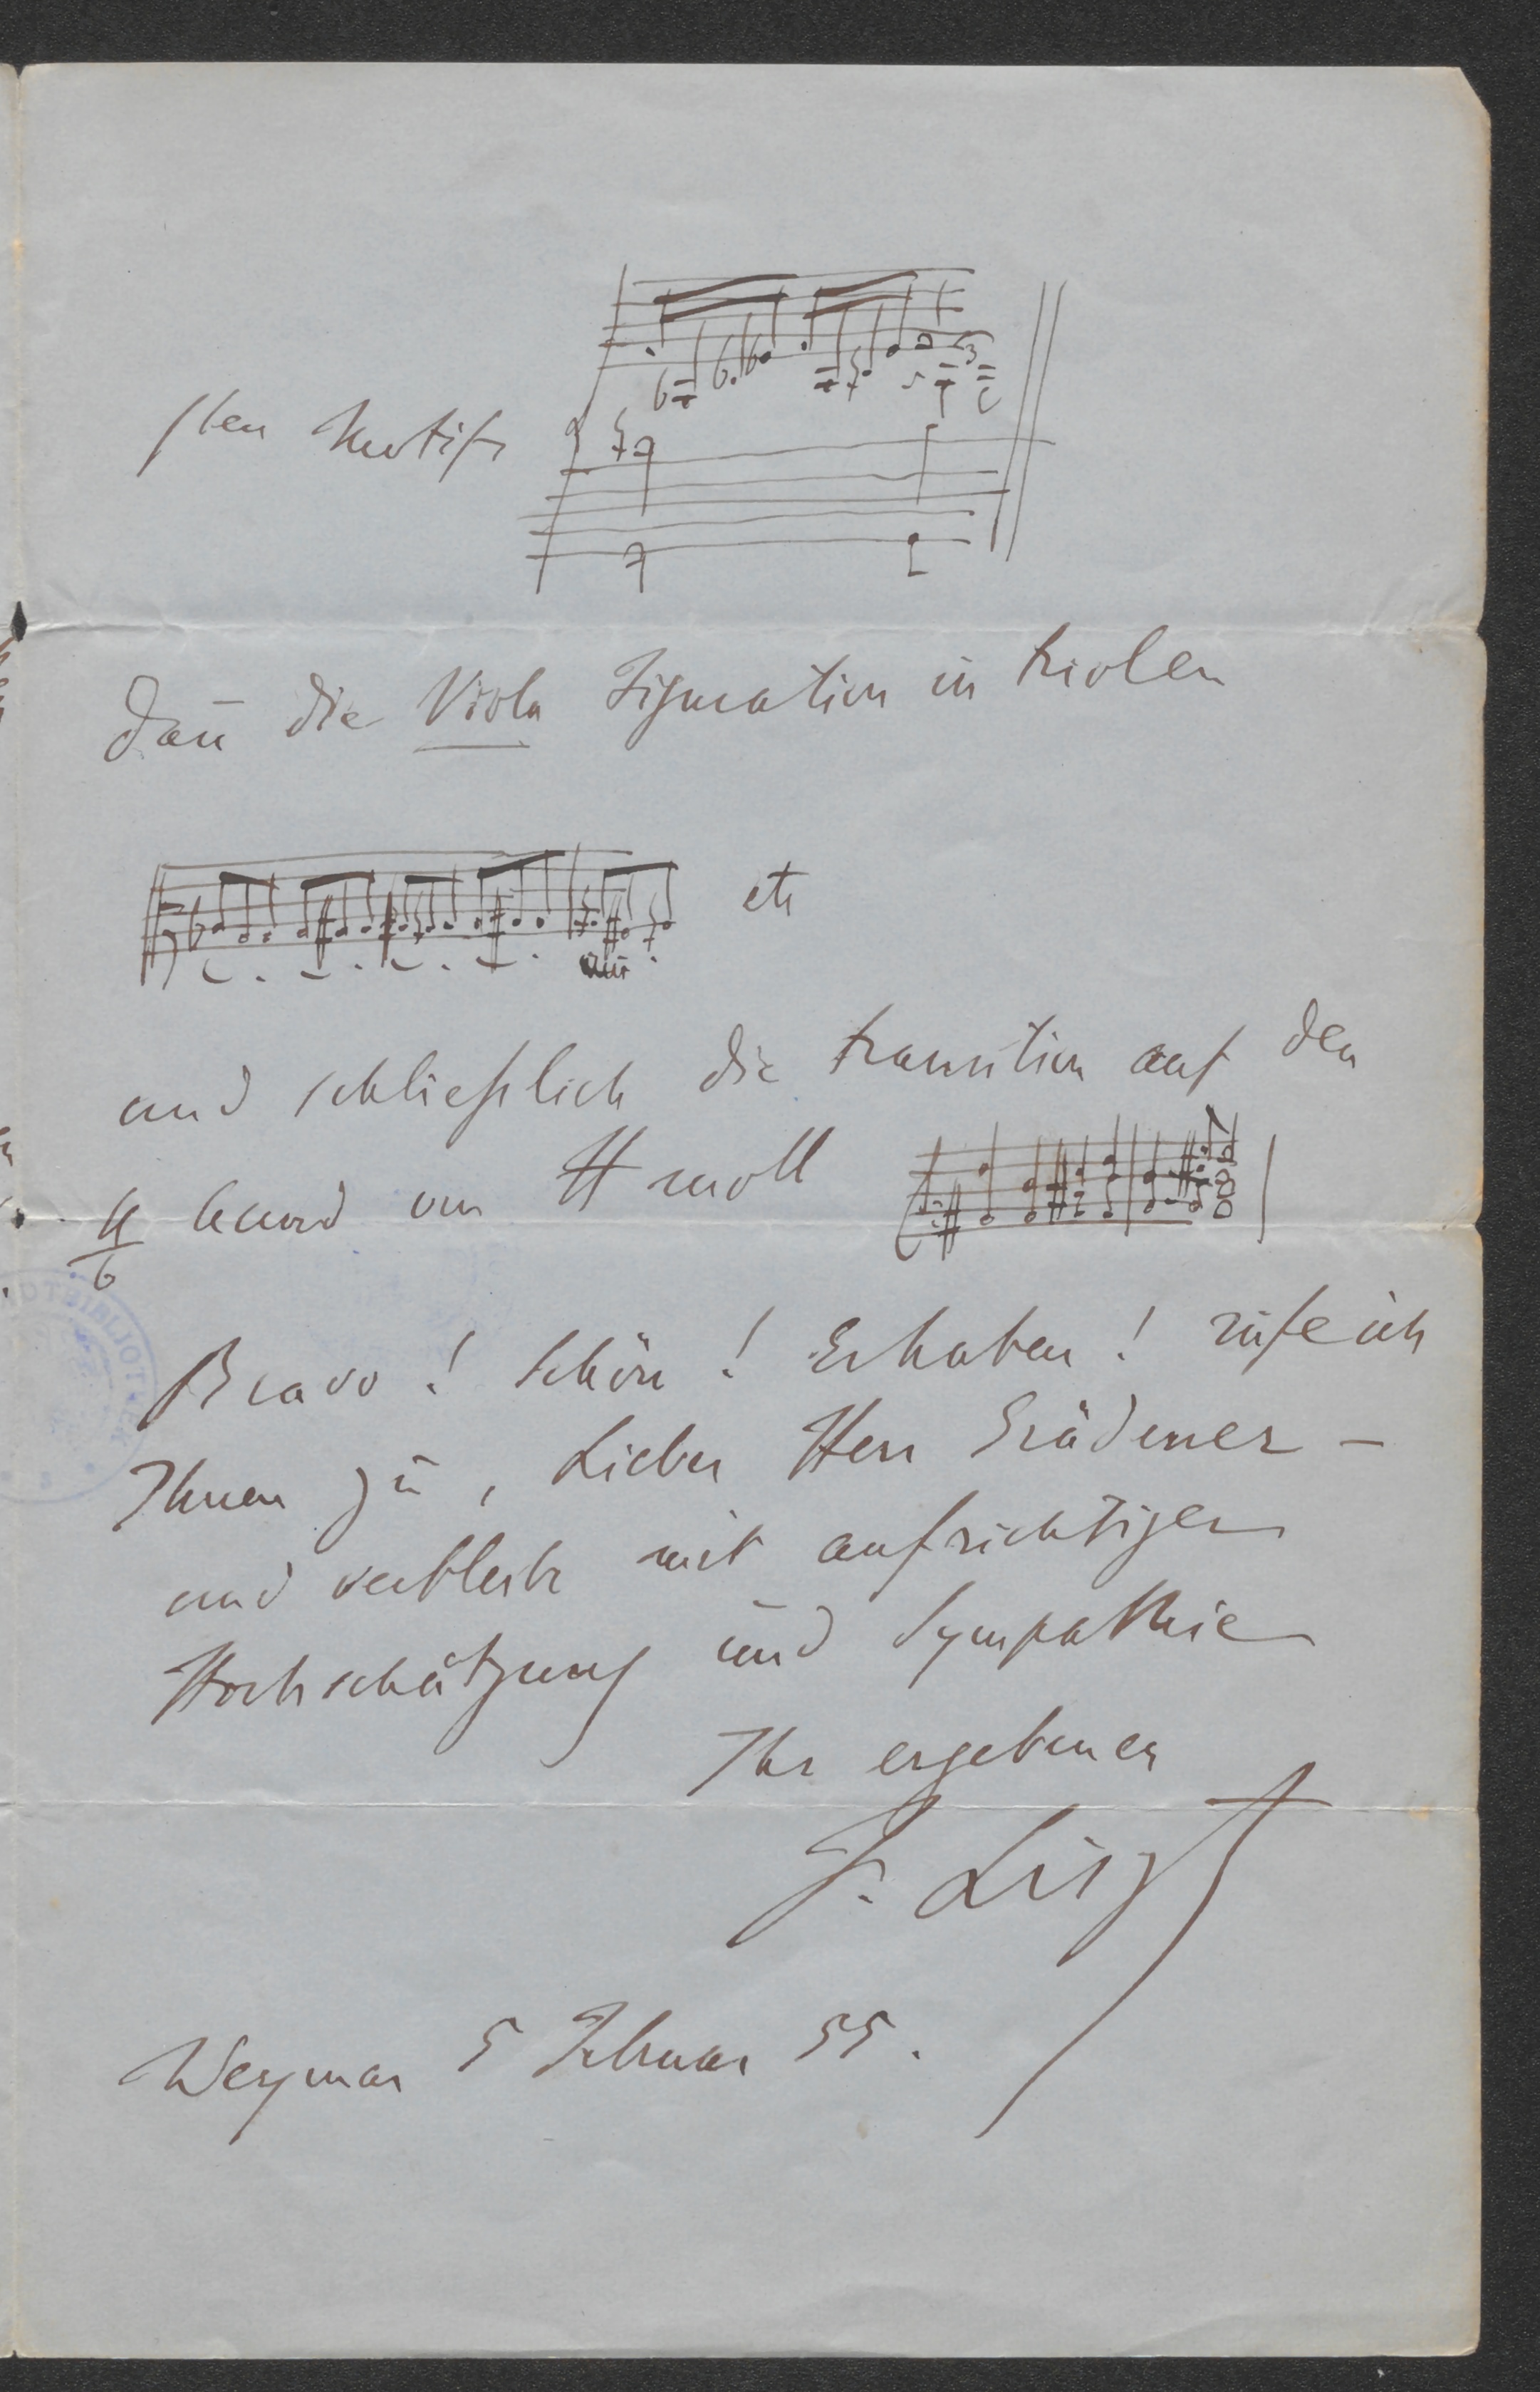 sten Motifs
Dan̄ die Viola Figuration in triolen
etc
und schließlich die transition auf den
4/6 Accord von H moll
Bravo! Schön! Erhaben! rufe ich
Ihnen zu, Lieber Herr Grädener –
und verbleibe mit aufrichtiger
Hochschätzung und Sympathie
Ihr ergebener
F. Liszt
Weymar 5 Februar 55.